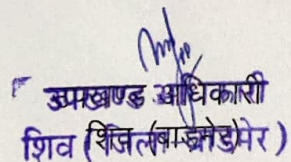 उपखण्ड अधिकारी
शिव (बाडमेर)